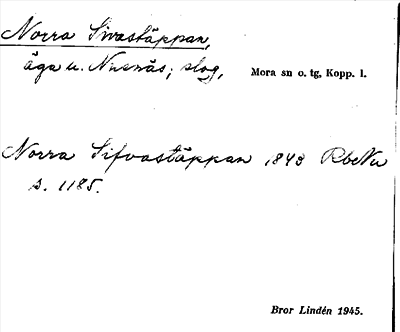 Norra Sivastäppan,
äga u. Nusnäs; slog, Mora sn o. tg, Kopp. l.
Norra Sifvastäppan 1843 RbNu
s. 1185.
Bror Lindén 1945.